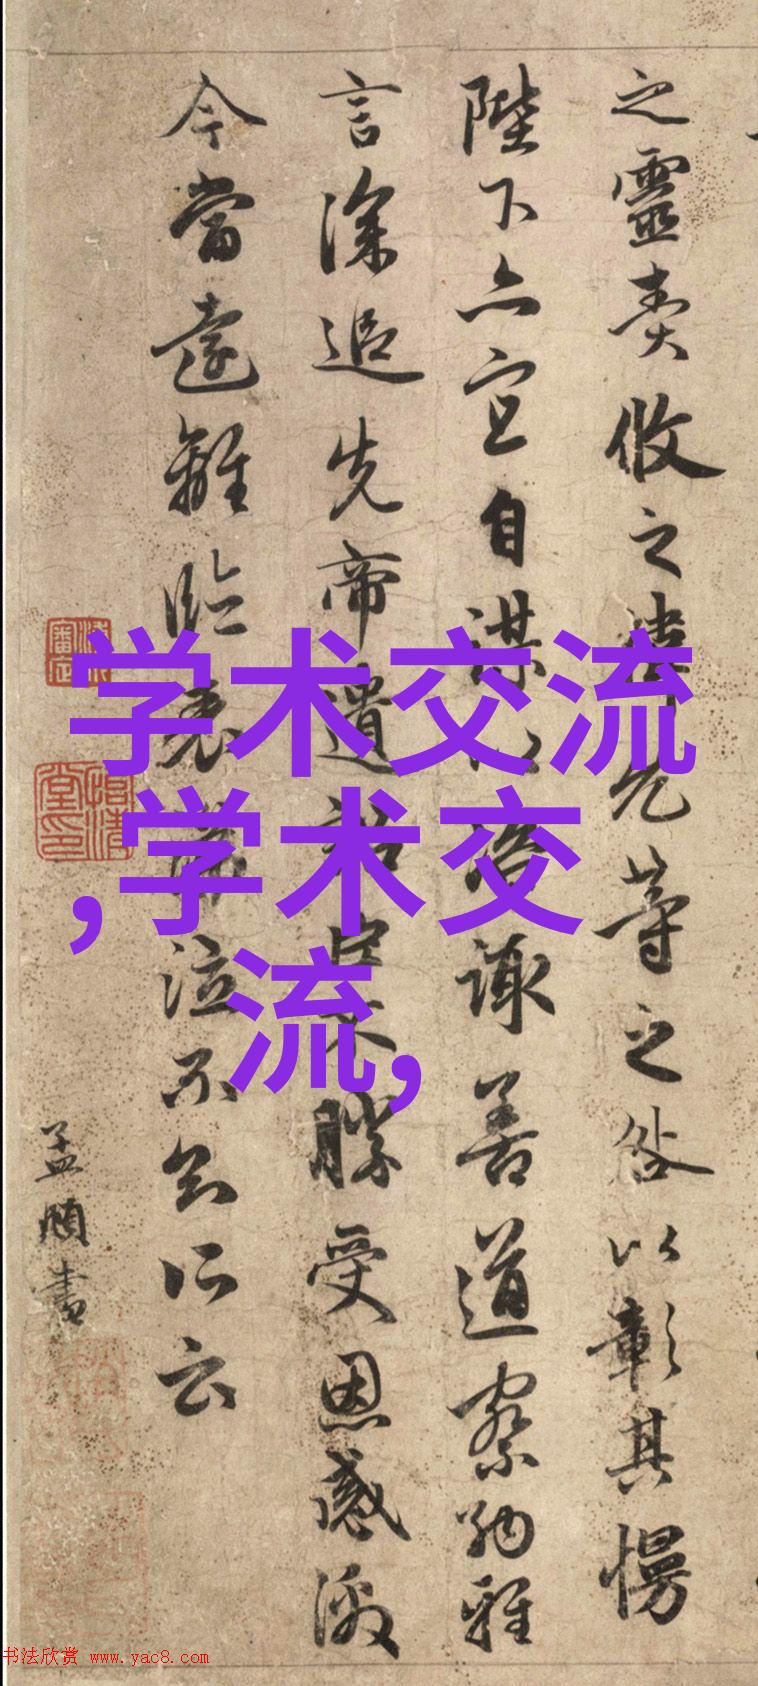 之靈責攸之禕允等之咎以彰其慢
陛下亦宜自謀以諮諏善道察納雅
言深追先帝遺詔臣不勝受恩感激
今當遠離臨表涕泣不知所云
孟頫書
学术交流
,学术交
流,
书法欣赏 www.yac8.com